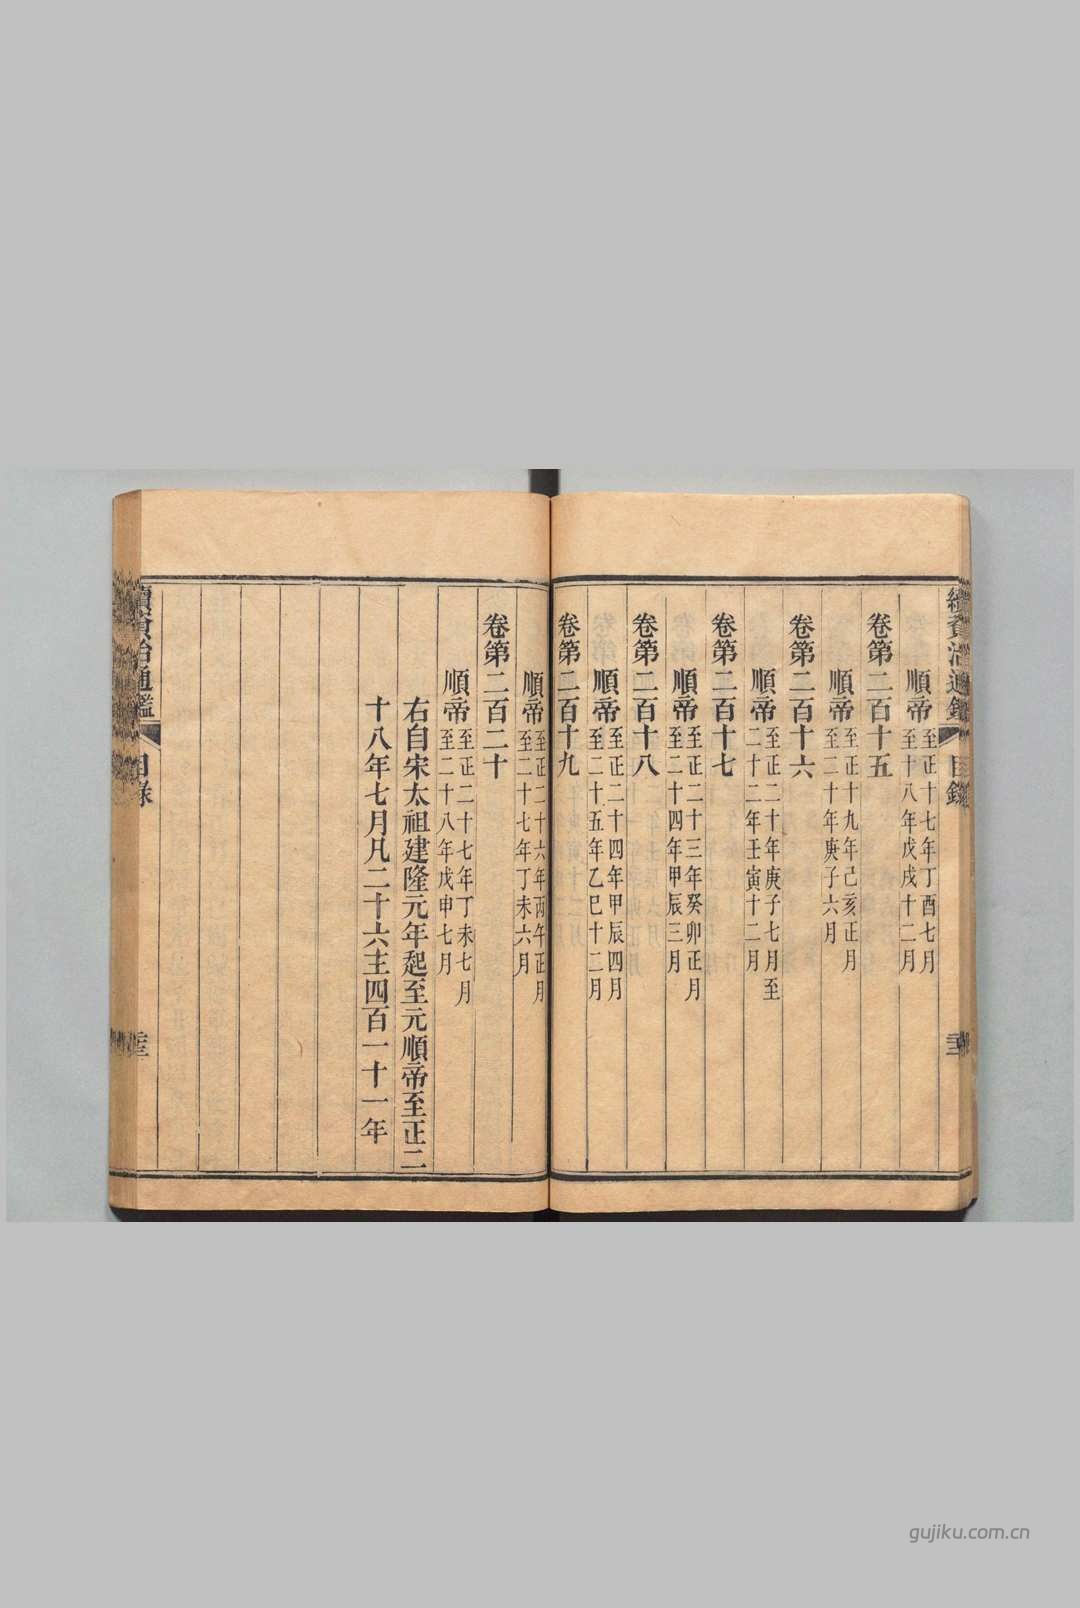 續資治通鑑 目錄 二十三
順帝至正十七年丁酉七月
至十八年戊戌十二月
卷第二百十五
順帝至正十九年己亥正月
至二十年庚子六月
卷第二百十六
順帝至正二十年庚子七月至
二十二年壬寅十二月
卷第二百十七
順帝至正二十三年癸卯正月
至二十四年甲辰三月
卷第二百十八
順帝至正二十四年甲辰四月
至二十五年乙巳十二月
卷第二百十九
順帝至正二十六年丙午正月
至二十七年丁未六月
卷第二百二十
順帝至正二十七年丁未七月
至二十八年戊申七月
右自宋太祖建隆元年起至元順帝至正二
十八年七月凡二十六主四百一十一年
續資治通鑑 目錄
gujiku.com.cn